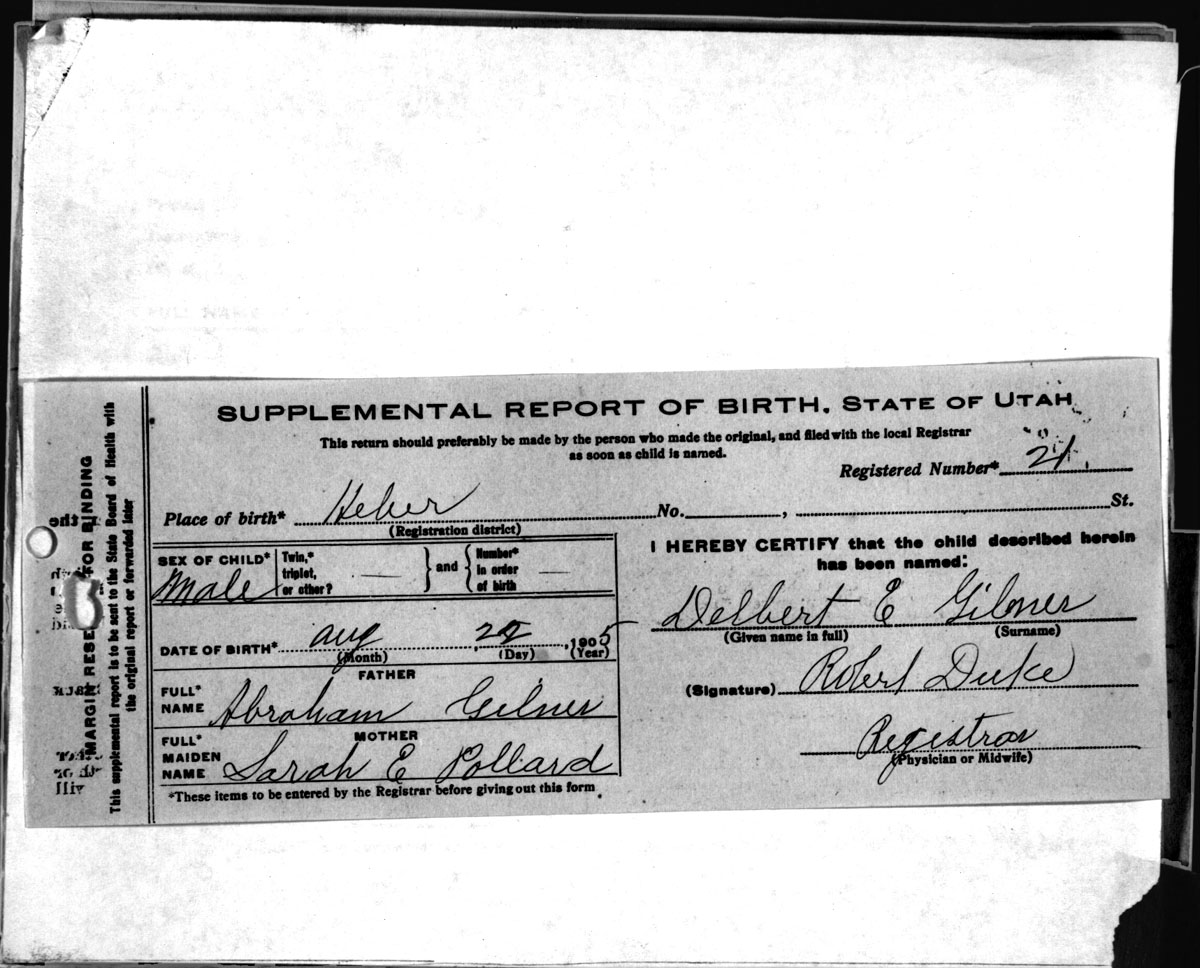 SUPPLEMENTAL REPORT OF BIRTH. STATE OF UTAH
This return should preferably be made by the person who made the original, and filed with the local Registrar
as soon as child is named.
Registered Number* 21
Place of birth* Heber No. , St.
(Registration district)
SEX OF CHILD* Male
Twin,* triplet, or other? — and Number* in order of birth —
DATE OF BIRTH* Aug , 22 , 1905
(Month) (Day) (Year)
FATHER
FULL* NAME Abraham Gilner
MOTHER
FULL* MAIDEN NAME Sarah E Pollard
*These items to be entered by the Registrar before giving out this form.
I HEREBY CERTIFY that the child described herein
has been named:
Delbert E Gilner
(Given name in full) (Surname)
(Signature) Robert Duke
Registrar
(Physician or Midwife)
MARGIN RESE FOR BINDING
This supplemental report is to be sent to the State Board of Health with
the original report or forwarded later
FULL NAME